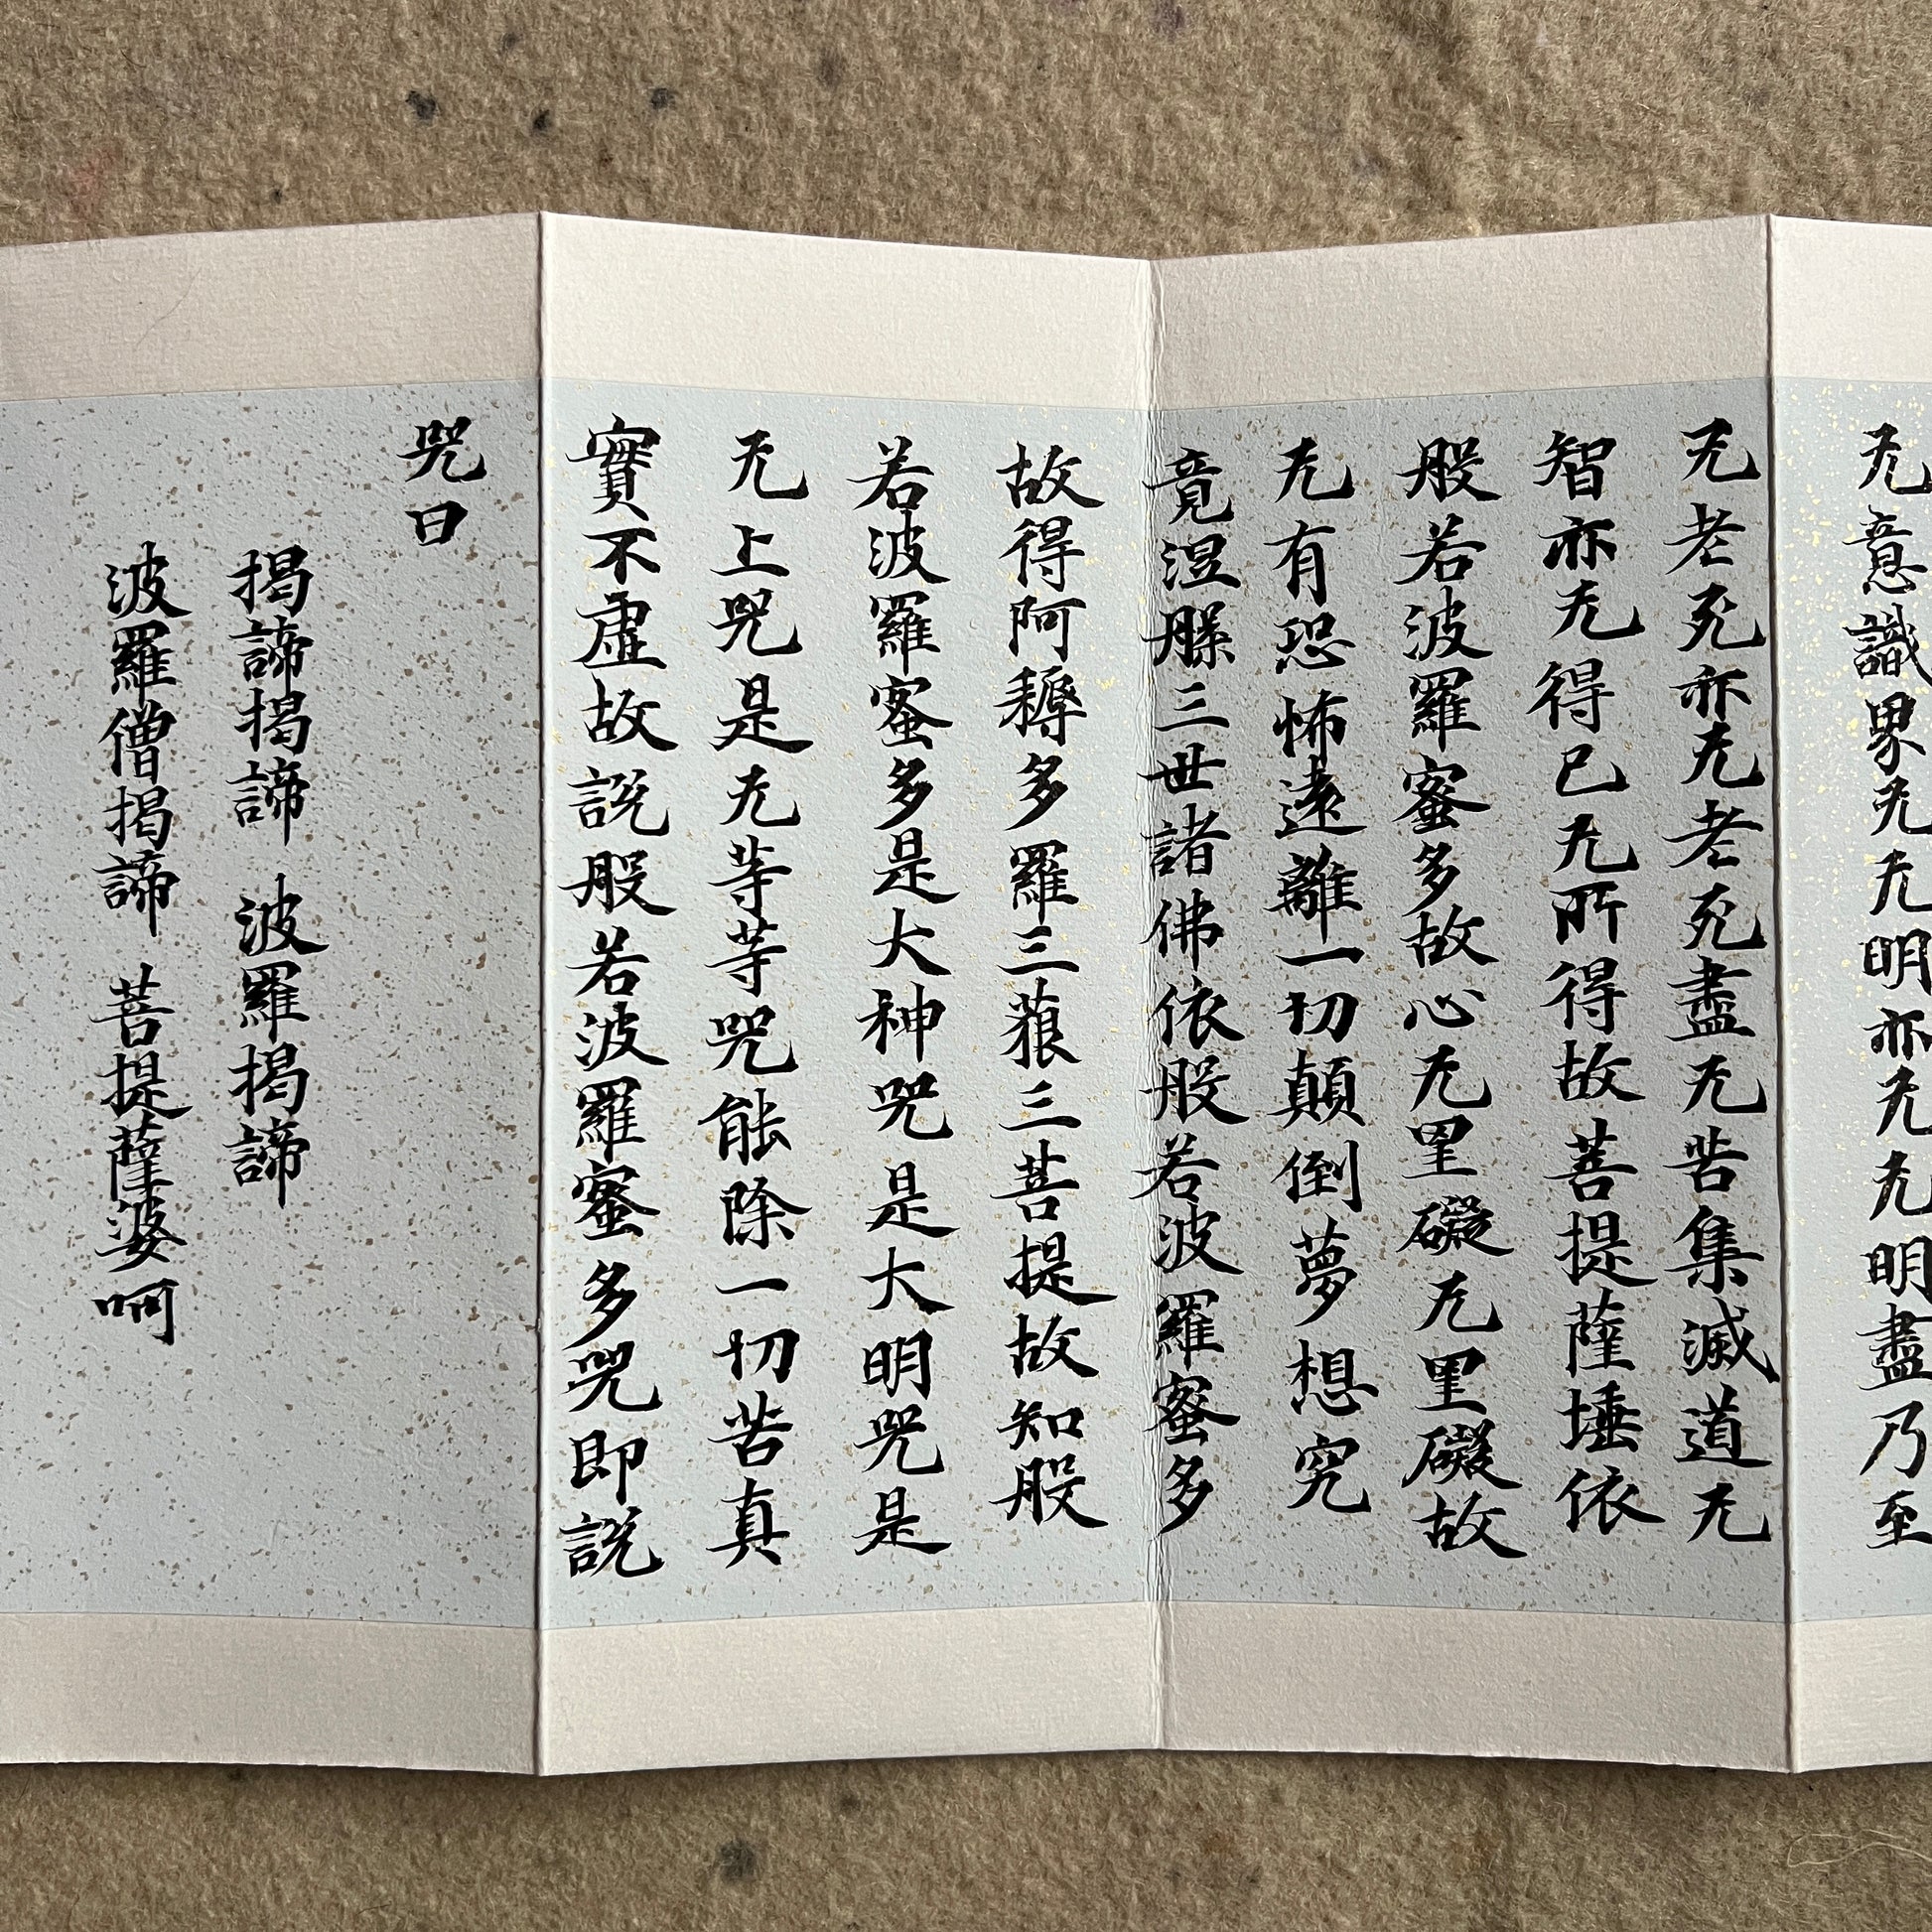 无意識界无无明亦无无明盡乃至
无老死亦无老死盡无苦集滅道无
智亦无得已无所得故菩提薩埵依
般若波羅蜜多故心无罣礙无罣礙故
无有恐怖遠離一切顛倒夢想究
竟涅槃三世諸佛依般若波羅蜜多
故得阿耨多羅三藐三菩提故知般
若波羅蜜多是大神咒是大明咒是
无上咒是无等等咒能除一切苦真
實不虛故說般若波羅蜜多咒即說
咒曰
揭諦揭諦 波羅揭諦
波羅僧揭諦 菩提薩婆呵